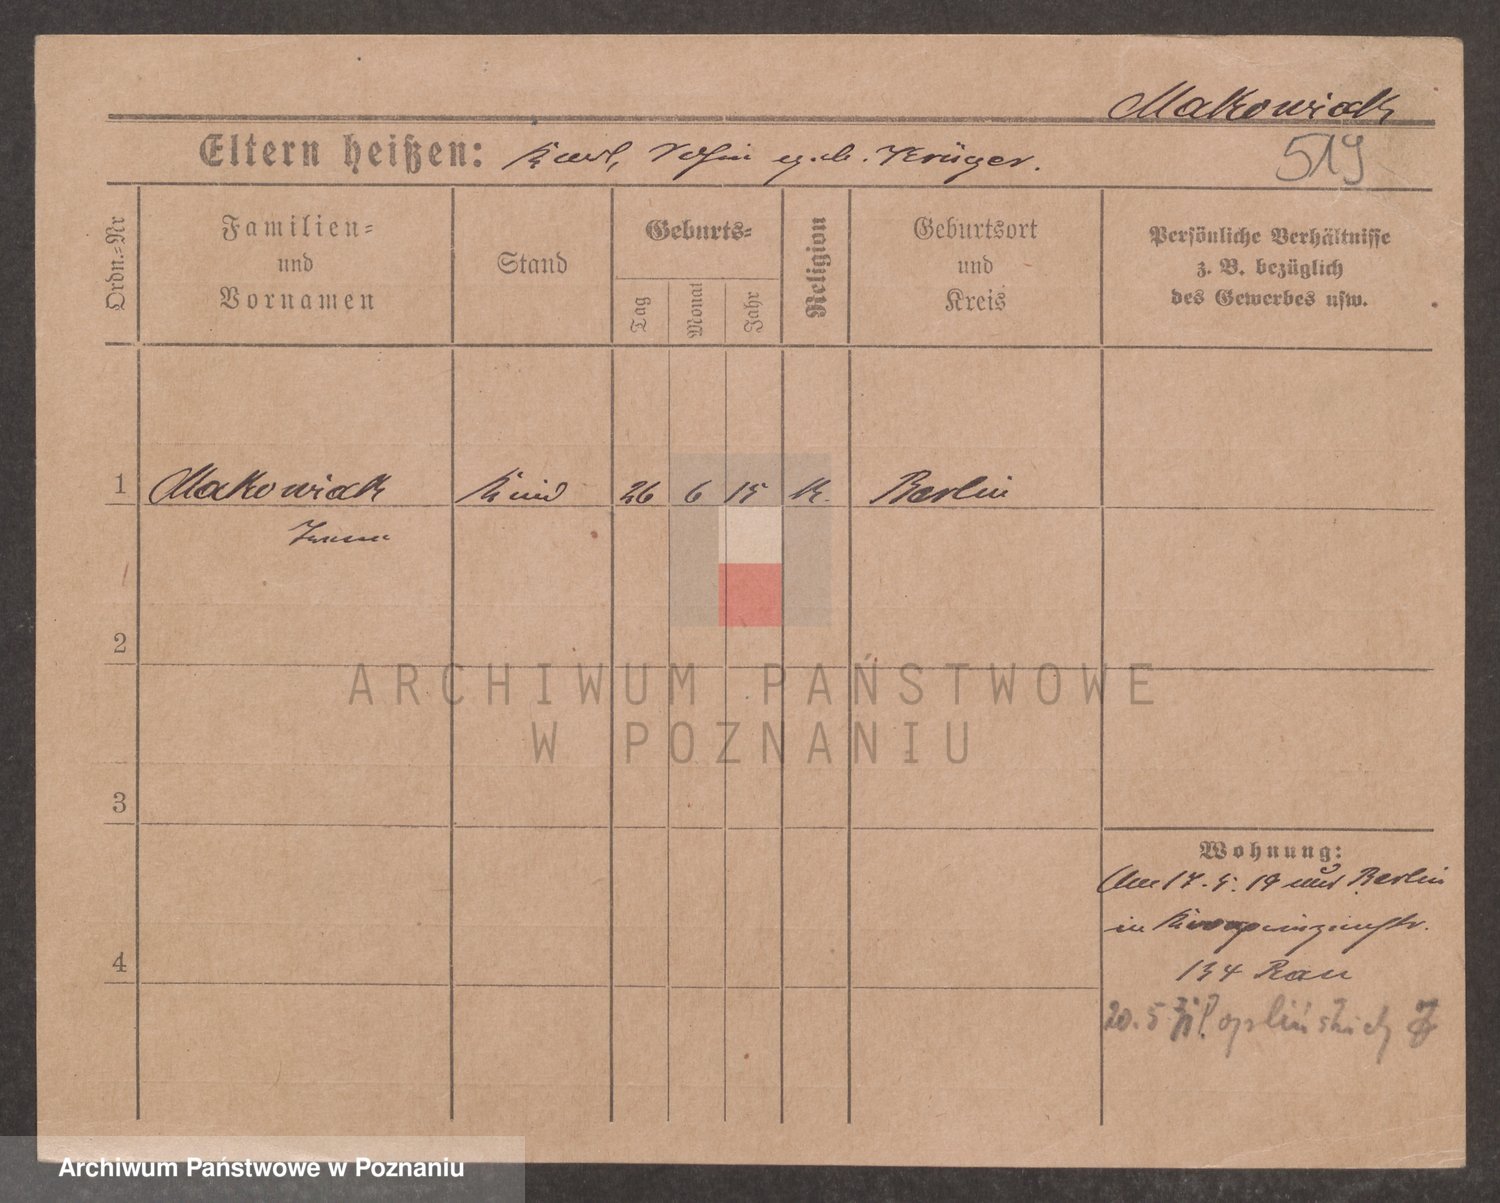 Makowiak
Eltern heißen: Karl, geb. Krüger.
519
Ordn.-Nr
Familien-
und
Vornamen
Stand
Geburts-
Tag
Monat
Jahr
Religion
Geburtsort
und
Kreis
Persönliche Verhältnisse
z. B. bezüglich
des Gewerbes usw.
1 Makowiak Kind 26 6 15 K. Berlin
2
ARCHIWUM PAŃSTWOWE
W POZNANIU
3
Wohnung:
Am 17. 5. 19 aus Berlin
in
4
134 Rau
20. 5.
Archiwum Państwowe w Poznaniu